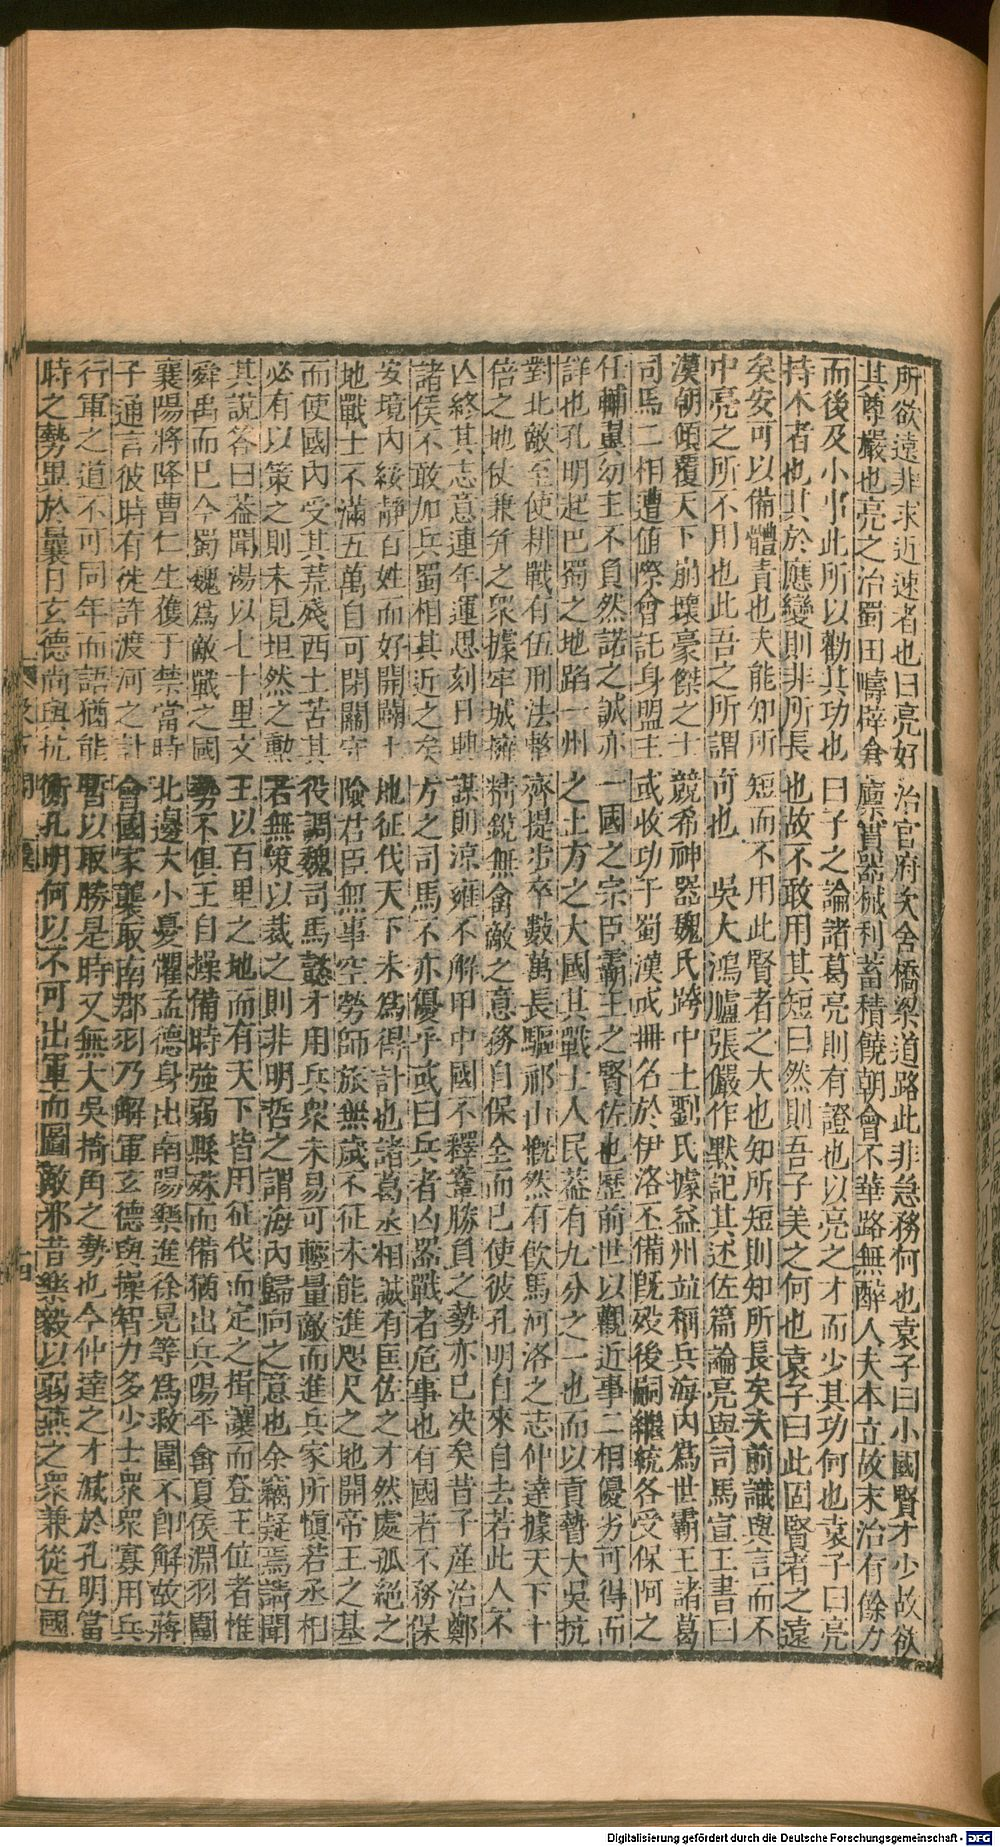 所欲遠非求近速者也曰亮好治官府次舍橋梁道路此非急務何也袁子曰小國賢才少故欲
其尊嚴也亮之治蜀田疇辟倉廩實器械利蓄積饒朝會不華路無醉人夫本立故末治有餘力
而後及小事此所以勸其功也曰子之論諸葛亮則有證也以亮之才而少其功何也袁子曰亮
持本者也其於應變則非所長也故不敢用其短曰然則吾子美之何也袁子曰此固賢者之遠
矣安可以備體責也夫能知所短而不用此賢者之大也知所短則知所長矣夫前識與言而不
中亮之所不用也此吾之所謂可也　吳大鴻臚張儼作默記其述佐篇論亮與司馬宣王書曰
漢朝傾覆天下崩壞豪傑之士競希神器魏氏跨中土劉氏據益州並稱兵海內爲世霸王諸葛
司馬二相遭值際會託身盟主或收功于蜀漢或冊名於伊洛丕備旣歿後嗣繼統各受保阿之
任輔翼幼主不負然諾之誠亦一國之宗臣霸王之賢佐也歷前世以觀近事二相優劣可得而
詳也孔明起巴蜀之地蹈一州之土方之大國其戰士人民葢有九分之一也而以貢贄大吳抗
對北敵至使耕戰有伍刑法整齊提步卒數萬長驅祁山慨然有飮馬河洛之志仲達據天下十
倍之地仗兼并之眾據牢城擁精銳無禽敵之意務自保全而已使彼孔明自來自去若此人不
亾終其志意連年運思刻日興謀則涼雍不解甲中國不釋鞌勝負之勢亦已决矣昔子産治鄭
諸侯不敢加兵蜀相其近之矣方之司馬不亦優乎或曰兵者凶器戰者危事也有國者不務保
安境內綏靜百姓而好開闢土地征伐天下未爲得計也諸葛丞相誠有匡佐之才然處孤絕之
地戰士不滿五萬自可閉關守險君臣無事空勞師旅無歲不征未能進咫尺之地開帝王之基
而使國內受其荒殘西土苦其役調魏司馬懿才用兵衆未易可輕量敵而進兵家所愼若丞相
必有以策之則未見坦然之勲若無策以裁之則非明哲之謂海內歸向之意也余竊疑焉請聞
其說答曰葢聞湯以七十里文王以百里之地而有天下皆用征伐而定之揖讓而登王位者惟
舜禹而已今蜀魏爲敵戰之國勢不俱王自操備時強弱縣殊而備猶出兵陽平禽夏侯淵羽圍
襄陽將降曹仁生獲于禁當時北邊大小憂懼孟德身出南陽樂進徐晃等爲救圍不卽解故蔣
子通言彼時有徙許渡河之計會國家襲取南郡羽乃解軍玄德與操智力多少士衆衆寡用兵
行軍之道不可同年而語猶能暫以取勝是時又無大吳掎角之勢也今仲達之才減於孔明當
時之勢異於曩日玄德尚與抗衡孔明何以不可出軍而圖敵邪昔樂毅以弱燕之衆兼從五國
Digitalisierung gefördert durch die Deutsche Forschungsgemeinschaft - DFG